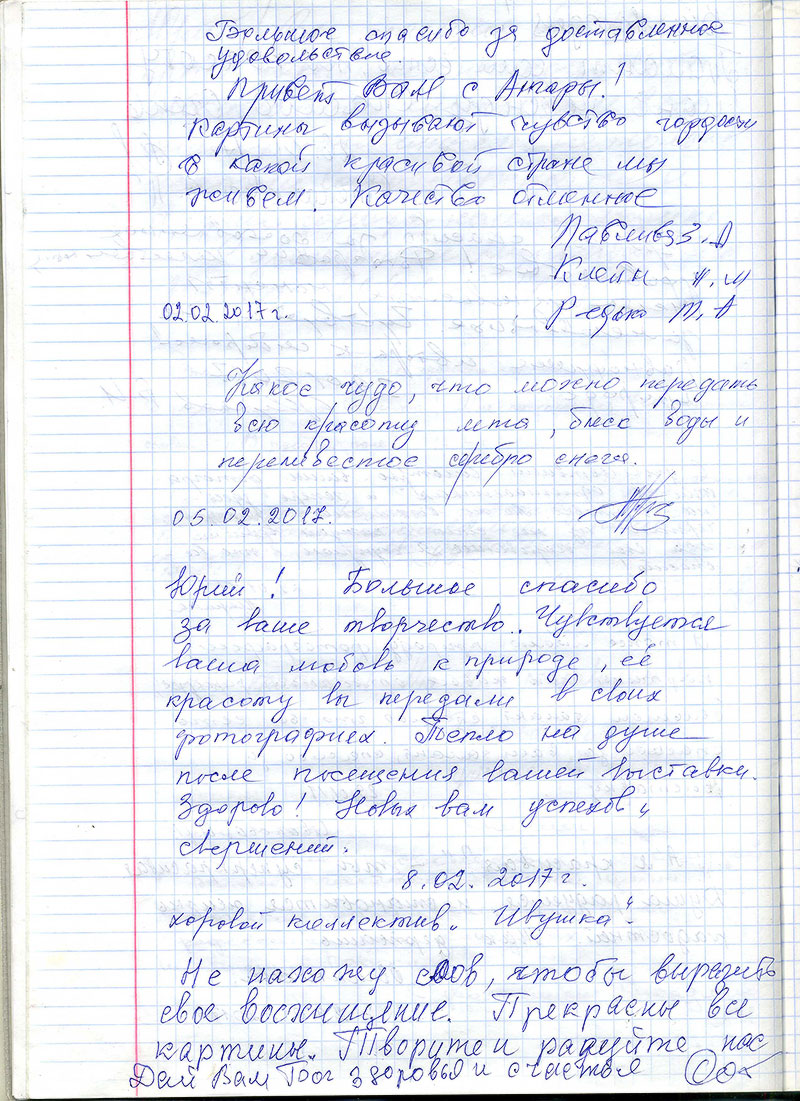 Большое спасибо за доставленное
удовольствие.
Привет Вам с Ангары!
Картины вызывают чувство гордости
в какой красивой стране мы
живем. Качество отменное
З. А
Клейн И. М
02.02.2017 г. Редько Т. А
Какое чудо, что можно передать
всю красоту лета, блеск воды и
серебро снега.
05.02.2017.
Юрий! Большое спасибо
за ваше творчество. Чувствуется
ваша любовь к природе, её
красоту вы передали в своих
фотографиях. Тепло на душе
после посещения вашей выставки.
Здорово! Новых вам успехов и
свершений.
8.02.2017 г.
хоровой коллектив „Ивушка“.
Не нахожу слов, чтобы выразить
свое восхищение. Прекрасны все
картины. Творите и радуйте нас
Дай Вам Бог здоровья и счастья